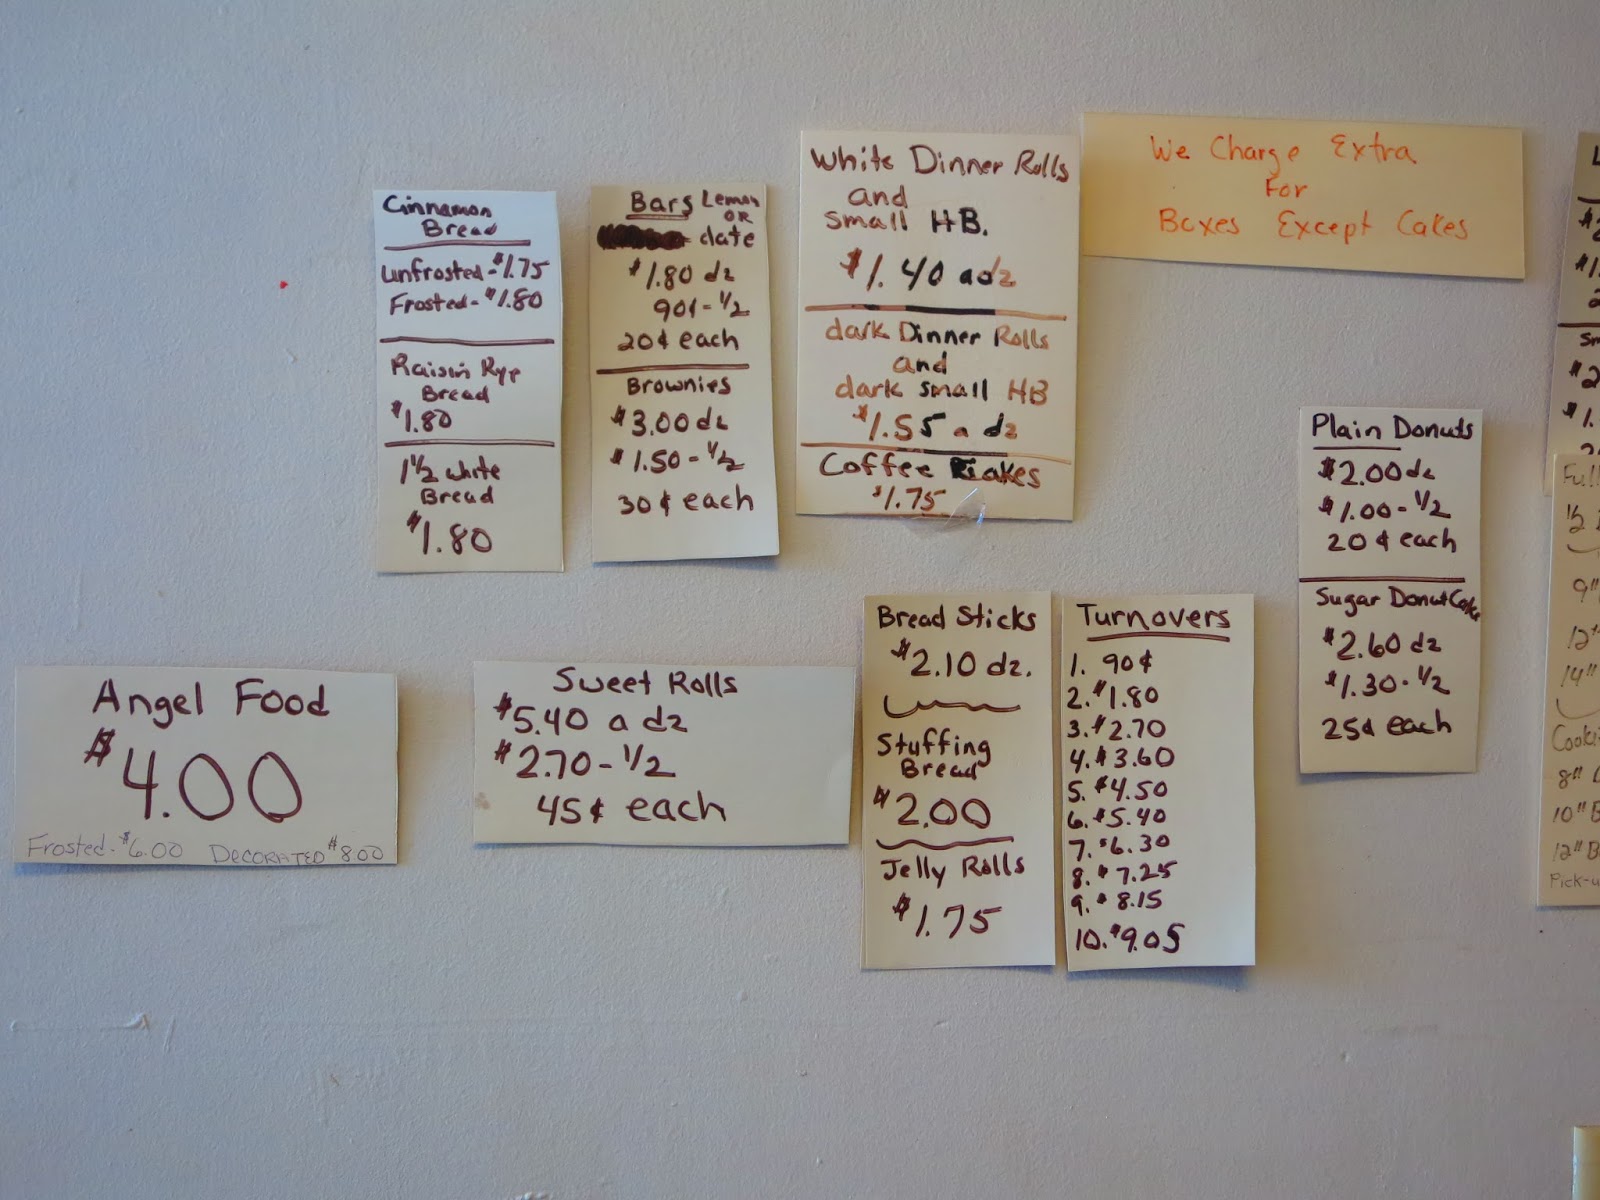 Cinnamon
Bread
Unfrosted - $1.75
Frosted - $1.80
Raisin Rye
Bread
$1.80
1½ white
Bread
$1.80
Bars Lemon
OR
date
$1.80 dz
90¢ - ½
20¢ each
Brownies
$3.00 dz
$1.50 - ½
30¢ each
White Dinner Rolls
and
small HB.
$1.40 a dz
dark Dinner Rolls
and
dark small HB
$1.55 a dz
Coffee Cakes
$1.75
We Charge Extra
For
Boxes Except Cakes
Plain Donuts
$2.00 dz
$1.00 - ½
20¢ each
Sugar Donut Cake
$2.60 dz
$1.30 - ½
25¢ each
Angel Food
$4.00
Frosted - $6.00 Decorated $8.00
Sweet Rolls
$5.40 a dz
$2.70 - ½
45¢ each
Bread Sticks
$2.10 dz.
Stuffing
Bread
$2.00
Jelly Rolls
$1.75
Turnovers
1. 90¢
2. $1.80
3. $2.70
4. $3.60
5. $4.50
6. $5.40
7. $6.30
8. $7.25
9. $8.15
10. $9.05
½
9"
14"
8"
10" B
12" B